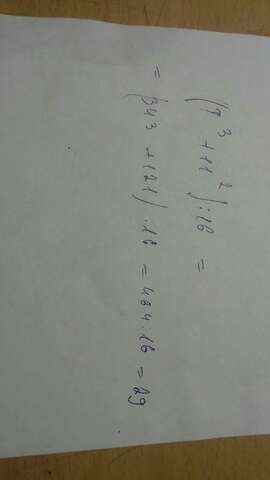 (7³ + 11²) : 16 =
= (343 + 121) : 16 = 464 : 16 = 29